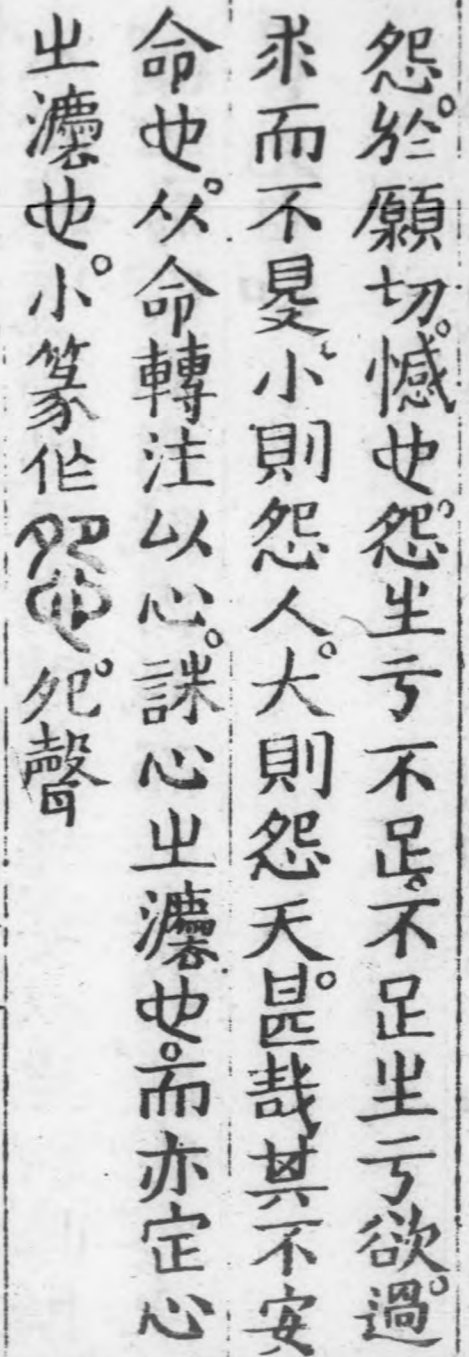 怨。於願切。憾也。怨生亏不足。不足生亏欲過。
求而不㝵、小則怨人。大則怨天。甚哉其不安
命也。从命轉注以心。誅心㞢灋也。而亦定心
㞢灋也。小篆作怨。夗聲